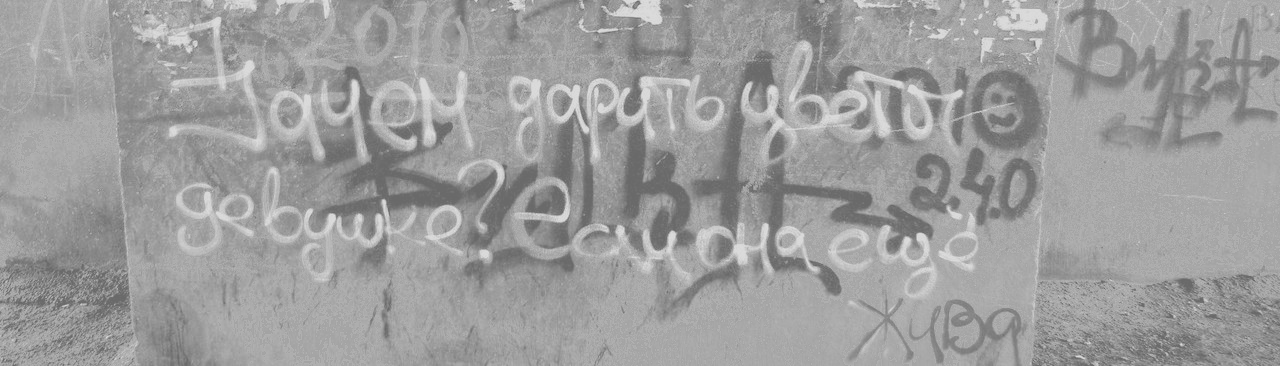 2010
Зачем дарить цветы
девушке? Если она ещё
жива
2.4.0